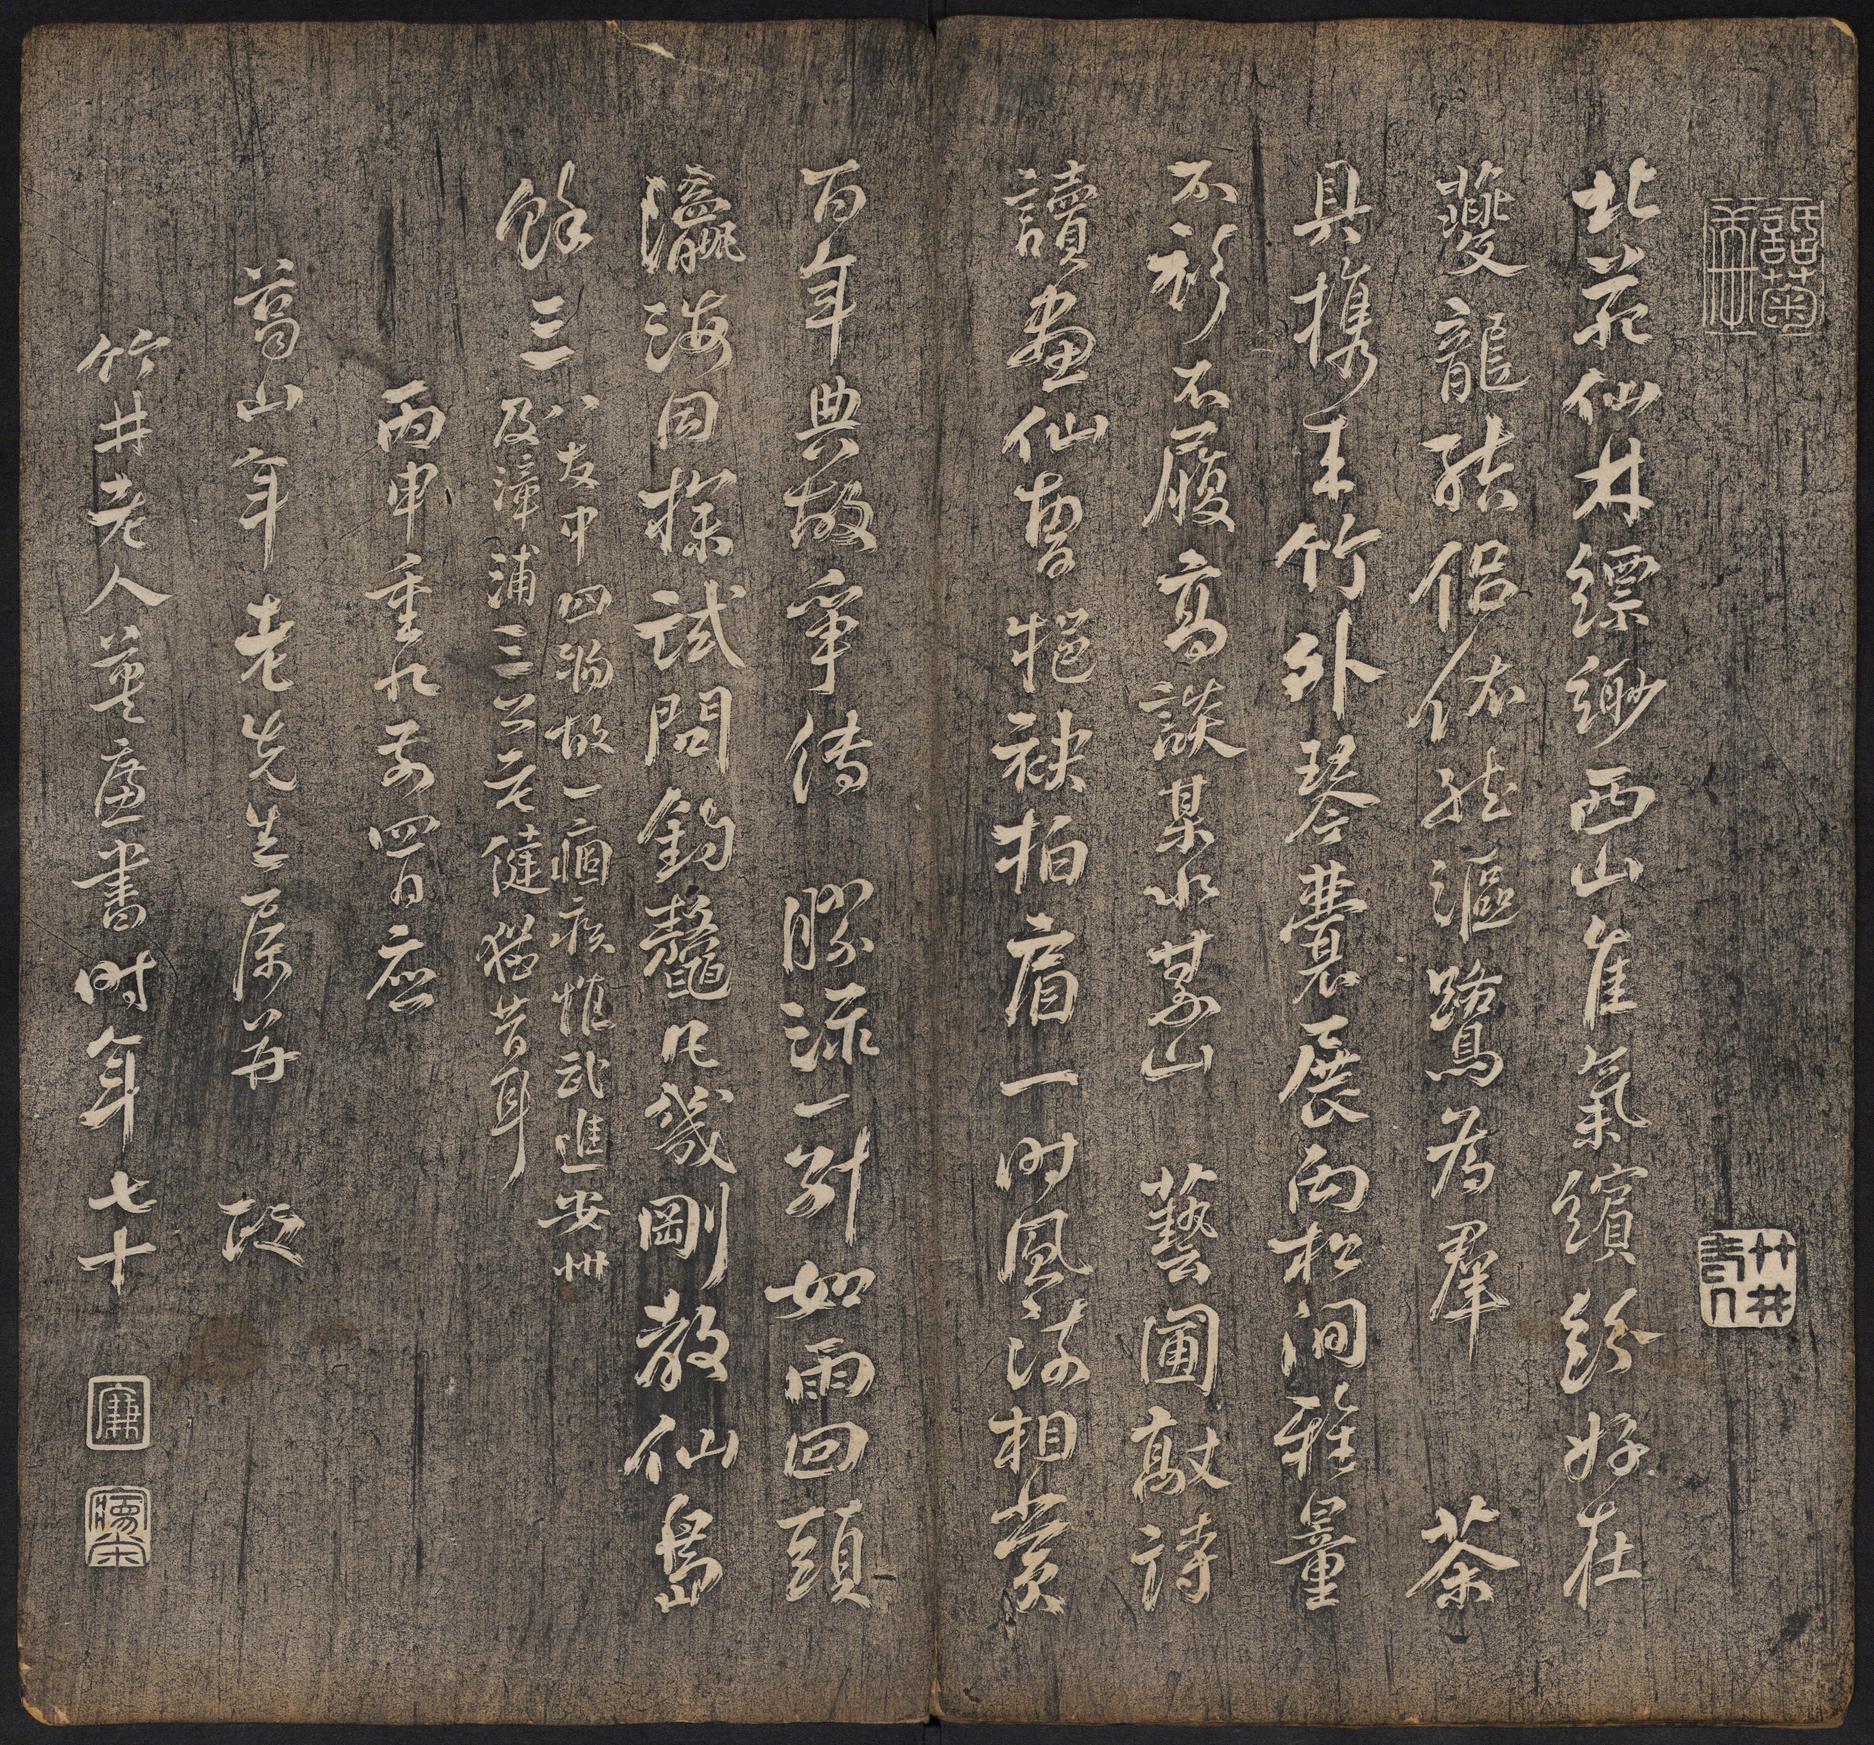 北苑仙材縹緲西山佳氣繽紛好在
夔龍結侶依然漚鷺爲羣 茶
具攜來竹外琴囊展向松間雅量
不衫不履高談某水某山 藝圃敲詩
讀畫仙曹挹袂拍肩一時風流相賞
百年典故爭傳 勝流一別如雨回頭
瀛海同探試問釣鼇凡幾剛教仙島
餘三
八友中四物故一痼疾惟武進安州
及漳浦三公老健猶昔耳
丙申重九前四日應
葛山年老先生屬並政
竹井老人董廉書時年七十
竹井